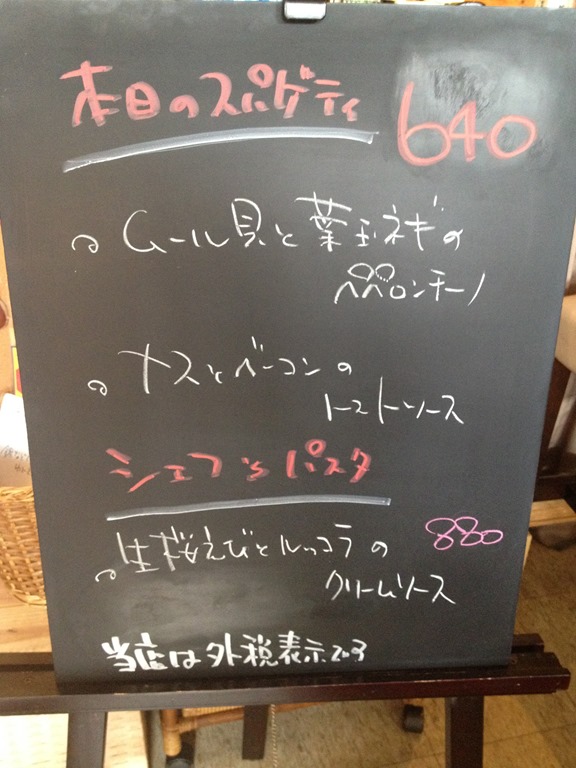 本日のスパゲティ 640
ムール貝と葉玉ネギの
ペペロンチーノ
ナスとベーコンの
トマトソース
シェフ'sパスタ
生桜えびとルッコラの 880
クリームソース
当店は外税表示です